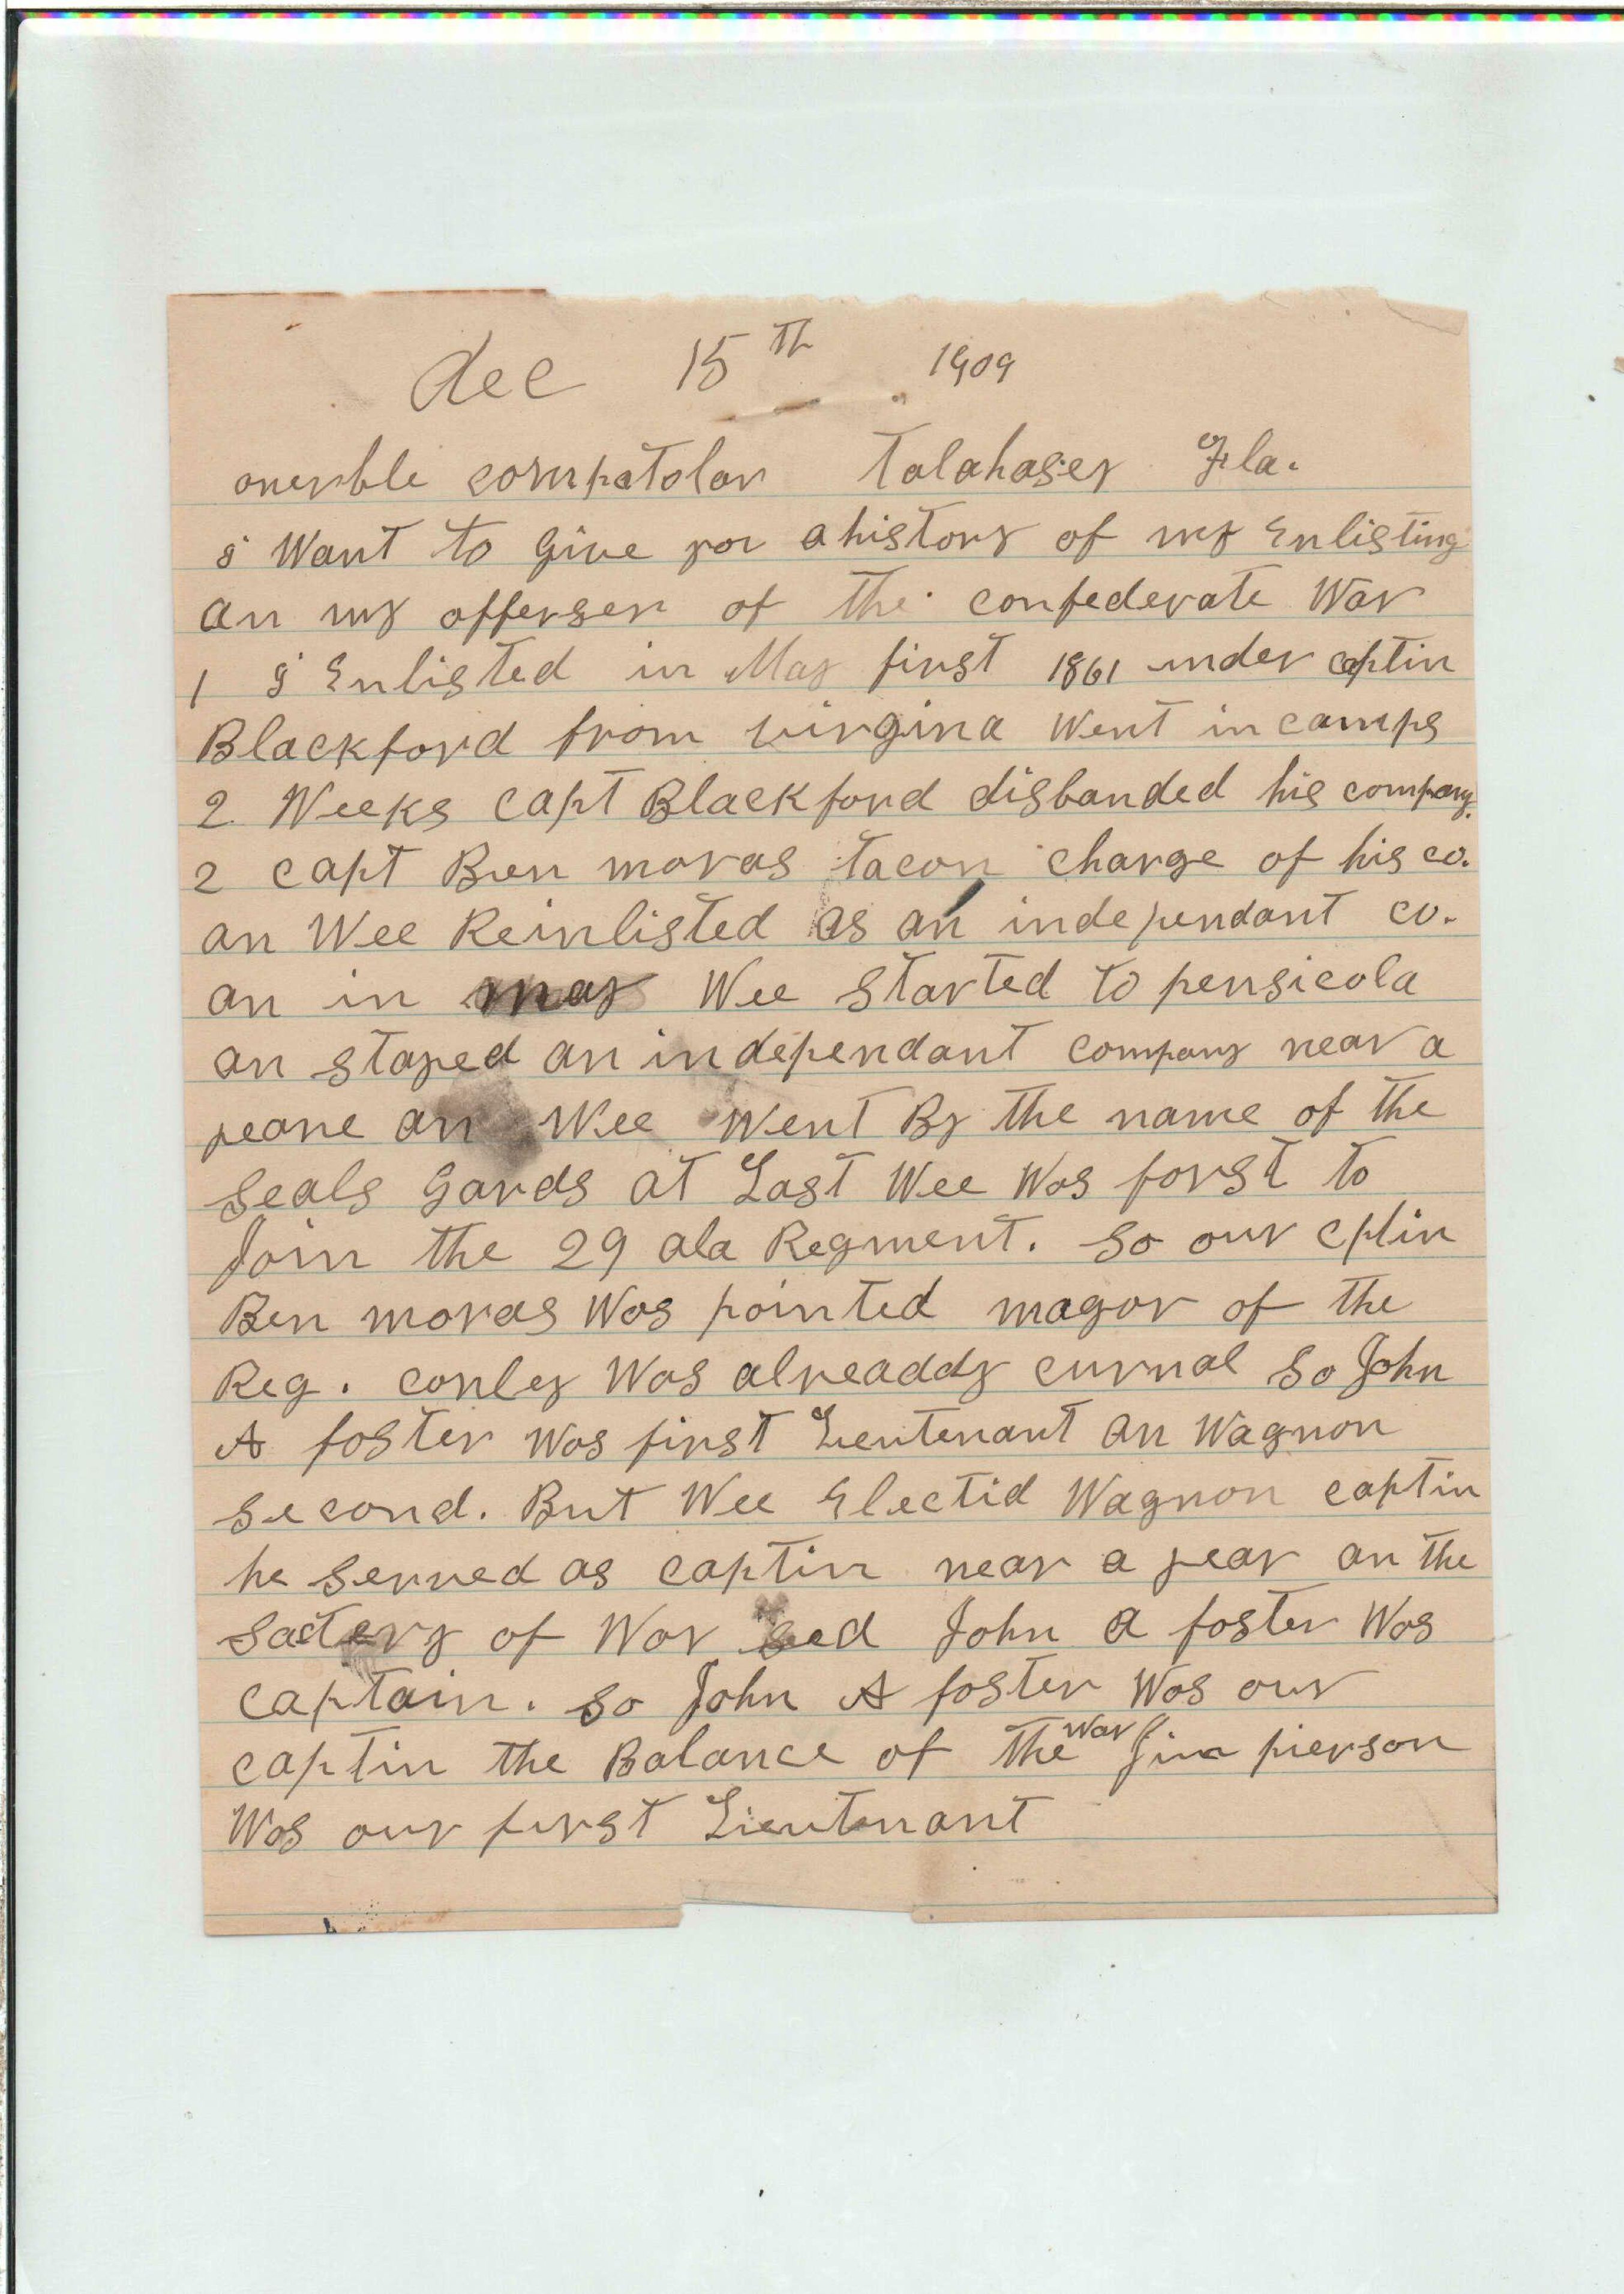 dec 15 th 1909
onerble compatolar Talahasey Fla.
i Want to Give you a history of my Enlisting
an my offerser of the confederate War
1 i Enlisted in May first 1861 under captin
Blackford from virgina Went in camps
2 Weeks capt Blackford disbanded his company.
2 capt Ben moras tacon charge of his co.
an Wee Reinlisted as an independant co.
an in may Wee started to pensicola
an stayed an independant company near a
yeare an Wee Went By the name of the
seals Gards at Last Wee Was forst to
Join the 29 ala Regment. so our cptin
Ben moras Was pointed magor of the
Reg. conley Was alreaddy curnal so John
A foster Was first Lieutenant an Wagnon
second. But Wee Electid Wagnon captin
he served as captin near a year an the
sactery of War sed John a foster Was
captain. so John A foster Was our
captin the Balance of the War Jim pierson
Was our furst Lieutenant